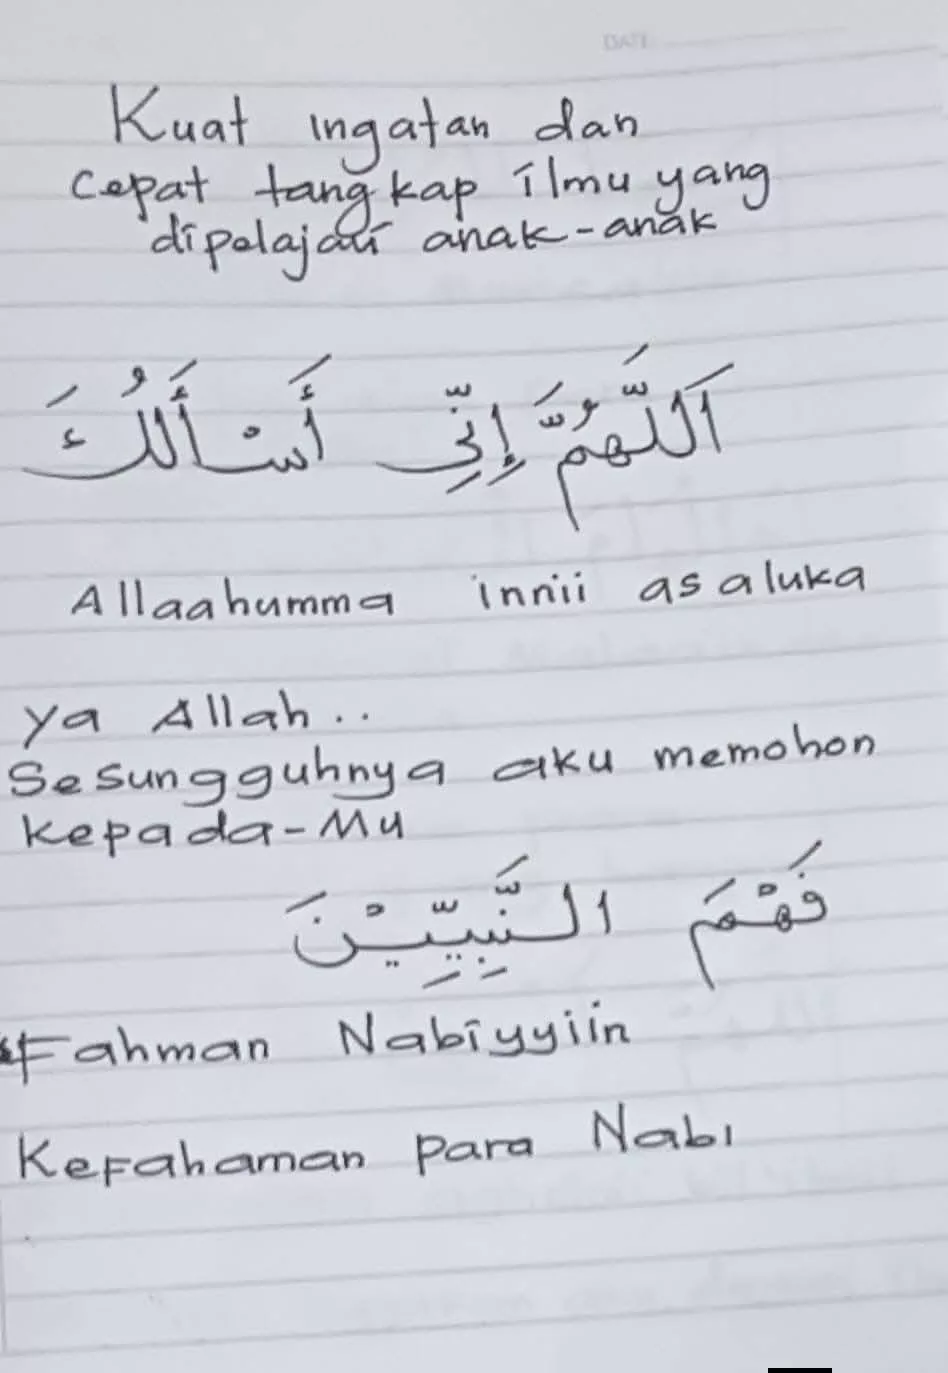 DATE
Kuat ingatan dan
cepat tangkap ilmu yang
dipelajari anak-anak
اَللَّهُمَّ إِنِّى أَسْأَلُكَ
Allaahumma innii asaluka
Ya Allah..
Sesungguhnya aku memohon
kepada-Mu
فَهْمَ النَّبِيِّيْنَ
Fahman Nabiyyiin
Kefahaman para Nabi